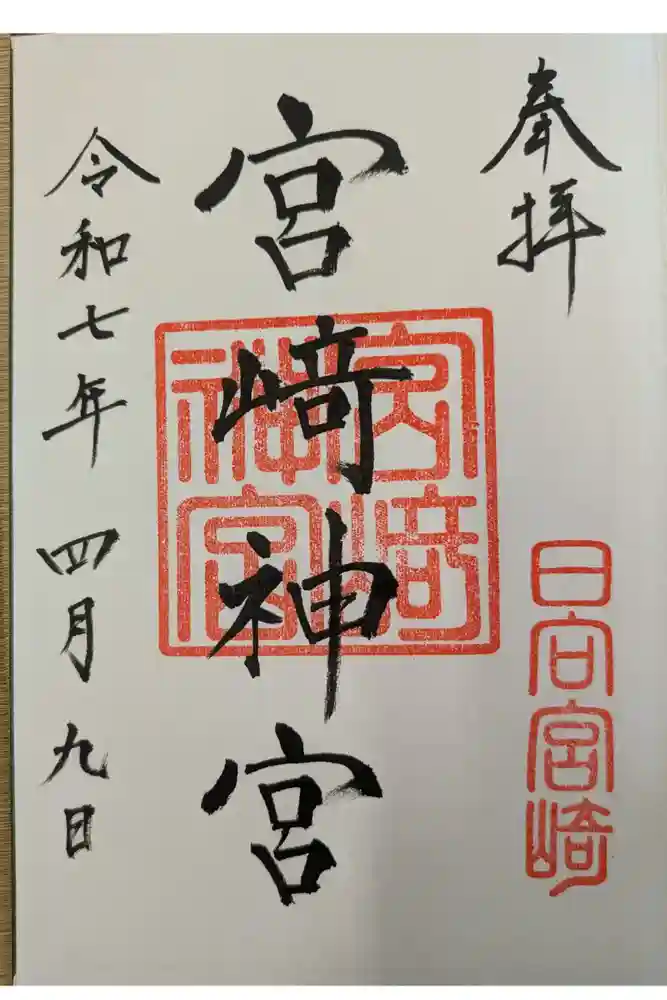 奉拝
日向宮崎
宮﨑神宮
宮崎神宮
令和七年 四月九日